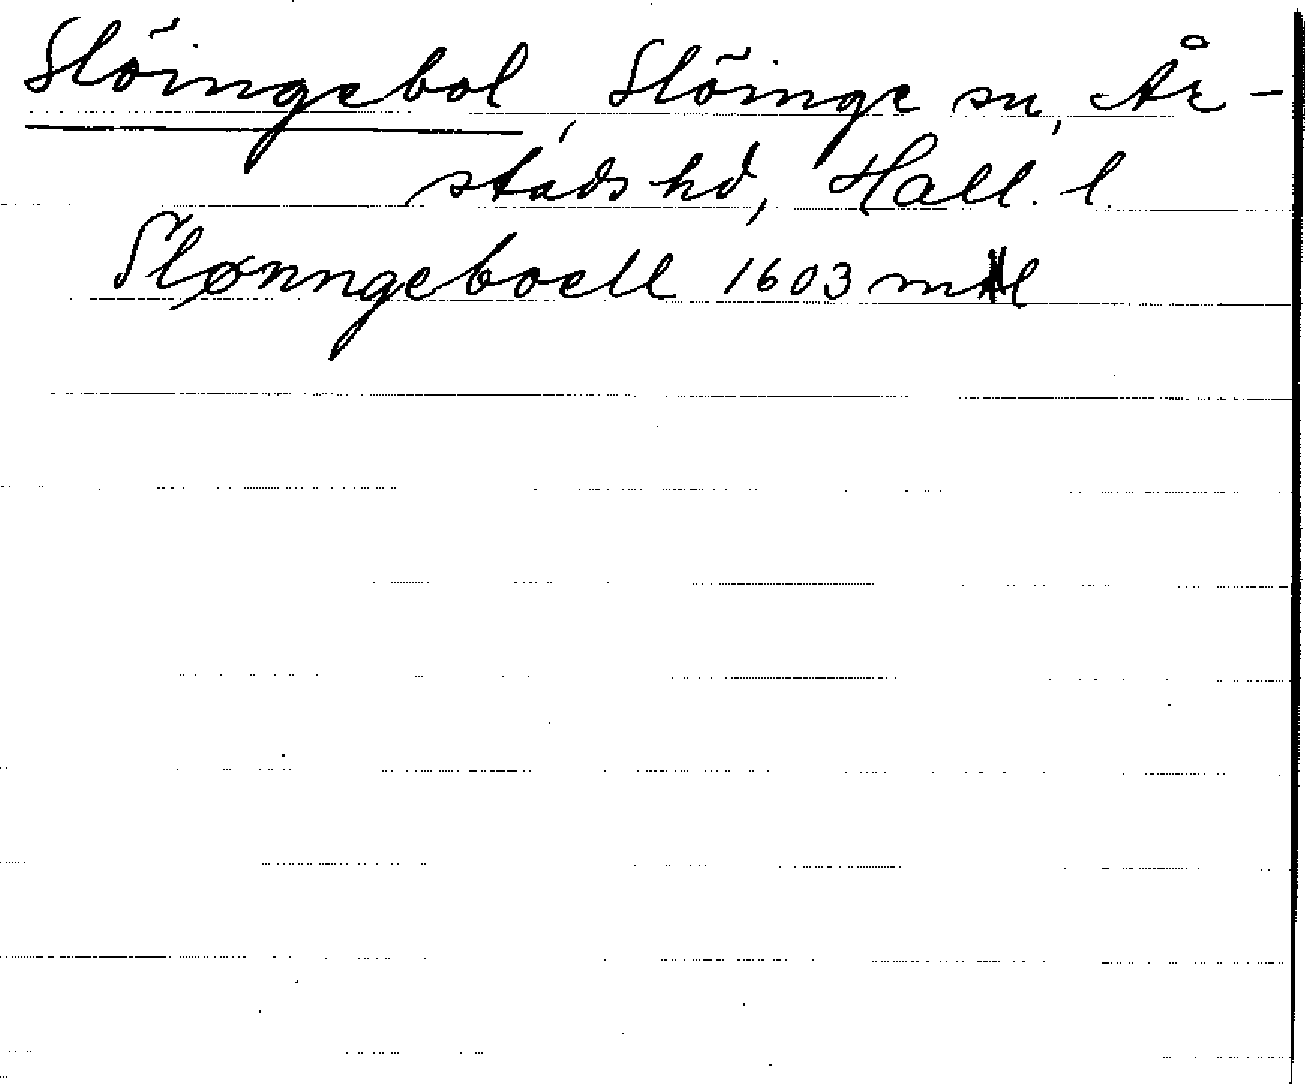 Slöingebol, Slöinge sn, År-
stads hd, Hall. l.
Slønngeboell 1603 mtl